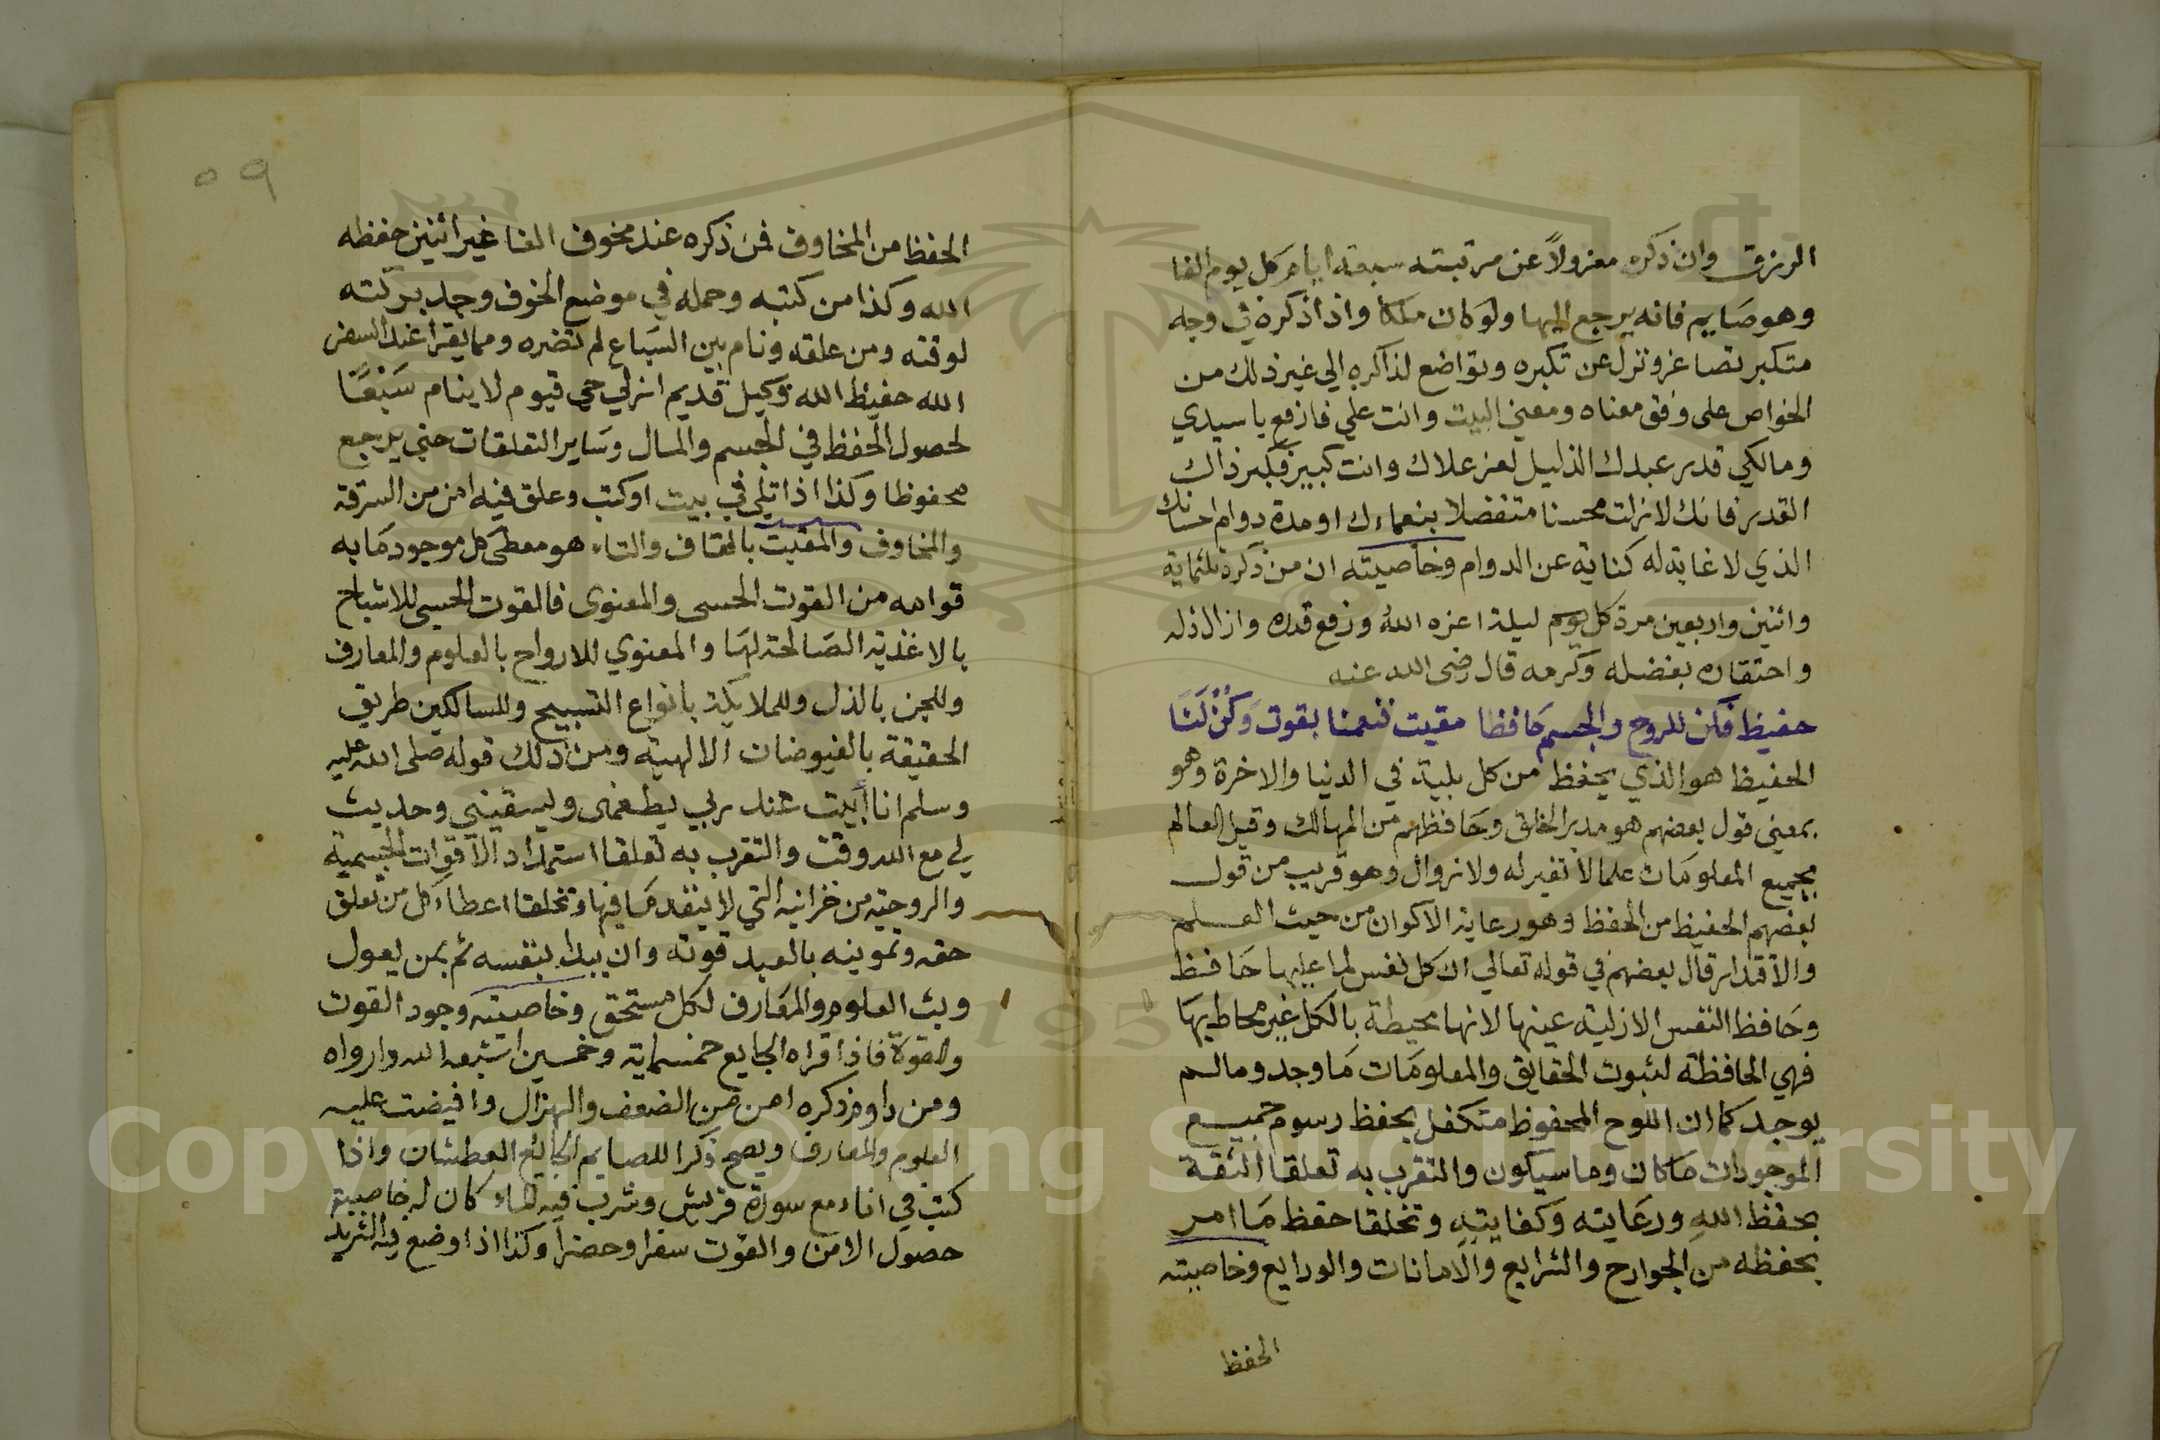 الرزق وان ذكره معزولاً عن مرتبته سبعة ايام كل يوم الفا
وهو صايم فانه يرجع اليها ولو كان ملكا واذا ذكره في وجه
متكبر تصاغر ونزل عن تكبره وتواضع لذاكره الي غير ذلك من
الخواص على وفق معناه ومعني البيت وانت علي فارفع يا سيدي
ومالكي قدر عبدك الذليل لعز علاك وانت كبير فكبر ذاك
القدر فانك لا زلت محسنا متفضلا بنعماءك او مدة دوام احسانك
الذي لا غاية له كناية عن الدوام وخاصيته ان من ذكره ثلثماية
واثنين واربعين مرة كل يوم ليلة اعزه الله ورفع قدره وازال ذله
واحتقاره بفضله وكرمه قال رضى الله عنه
حفيظ فكن للروح والجسم حافظا مقيت فنعمنا بقوت وكن لنا
الحفيظ هو الذي يحفظ من كل بلية في الدنيا والاخرة وهو
بمعني قول بعضهم هو مدبر الخلق وحافظهم من المهالك وقيل العالم
بجميع المعلومات علما لا تغير له ولا زوال وهو قريب من قول
بعضهم الحفيظ من الحفظ وهو رعاية الاكوان من حيث العلم
والاقتدار قال بعضهم في قوله تعالي ان كل نفس لما عليها حافظ
وحافظ النفس الازلية عينها لانها محيطة بالكل غير محاط بها
فهي الحافظة لثبوت الحقايق والمعلومات ما وجد وما لم
يوجد كما ان اللوح المحفوظ متكفل بحفظ رسوم جميع
الموجودات ما كان وما سيكون والتقرب به تعلقا الثقة
بحفظ الله ورعايته وكفايته وتخلقا حفظ ما امر
بحفظه من الجوارح والشرايع والامانات والودايع وخاصيته
الحفظ
٥٩
الحفظ من المخاوف فمن ذكره عند مخوف الفا غير اثنين حفظه
الله وكذا من كتبه وحمله في موضع الخوف وجد بركته
لوقته ومن علقه ونام بين السباع لم تضره ومما يقرأ عند السفر
الله حفيظ الله وكيل قديم ازلي حي قيوم لا ينام سبعًا
لحصول الحفظ في الجسم والمال وساير التعلقات حتي يرجع
محفوظا وكذا اذا تلي في بيت او كتب وعلق فيه امن من السرقة
والمخاوف والمقيت بالقاف والتاء هو معطى كل موجود ما به
قوامه من القوت الحسى والمعنوى فالقوت الحسي للاشباح
بالاغذية الصالحة لها والمعنوي للارواح بالعلوم والمعارف
وللجن بالذل وللملايكة بانواع التسبيح وللسالكين طريق
الحقيقة بالفيوضات الالهية ومن ذلك قوله صلى الله عليه
وسلم انا أبيت عند ربي يطعمنى ويسقيني وحديث
لي مع الله وقت والتقرب به تعلقا استمداد الاقوات الجسمية
والروحية من خزاينه التي لا ينفد ما فيها وتخلقا اعطاء كل من تعلق
حقه وتموينه بالعبد قوته وان يبدا بنفسه ثم بمن يعول
وبث العلوم والمعارف لكل مستحق وخاصيته وجود القوت
والقوة فاذا قراه الجايع خمسماية وخمسين اشبعه الله وارواه
ومن داوم ذكره امن من الضعف والهزال وافيضت عليه
العلوم والمعارف ويصح ذكرا للصايم الجايع العطشان واذا
كتب في اناء مع سورة قريش وشرب فيه الماء كان له خاصية
حصول الامن والقوت سفرا وحضرا وكذا اذا وضع فيه الثريد
Copyright © King Saud University
195